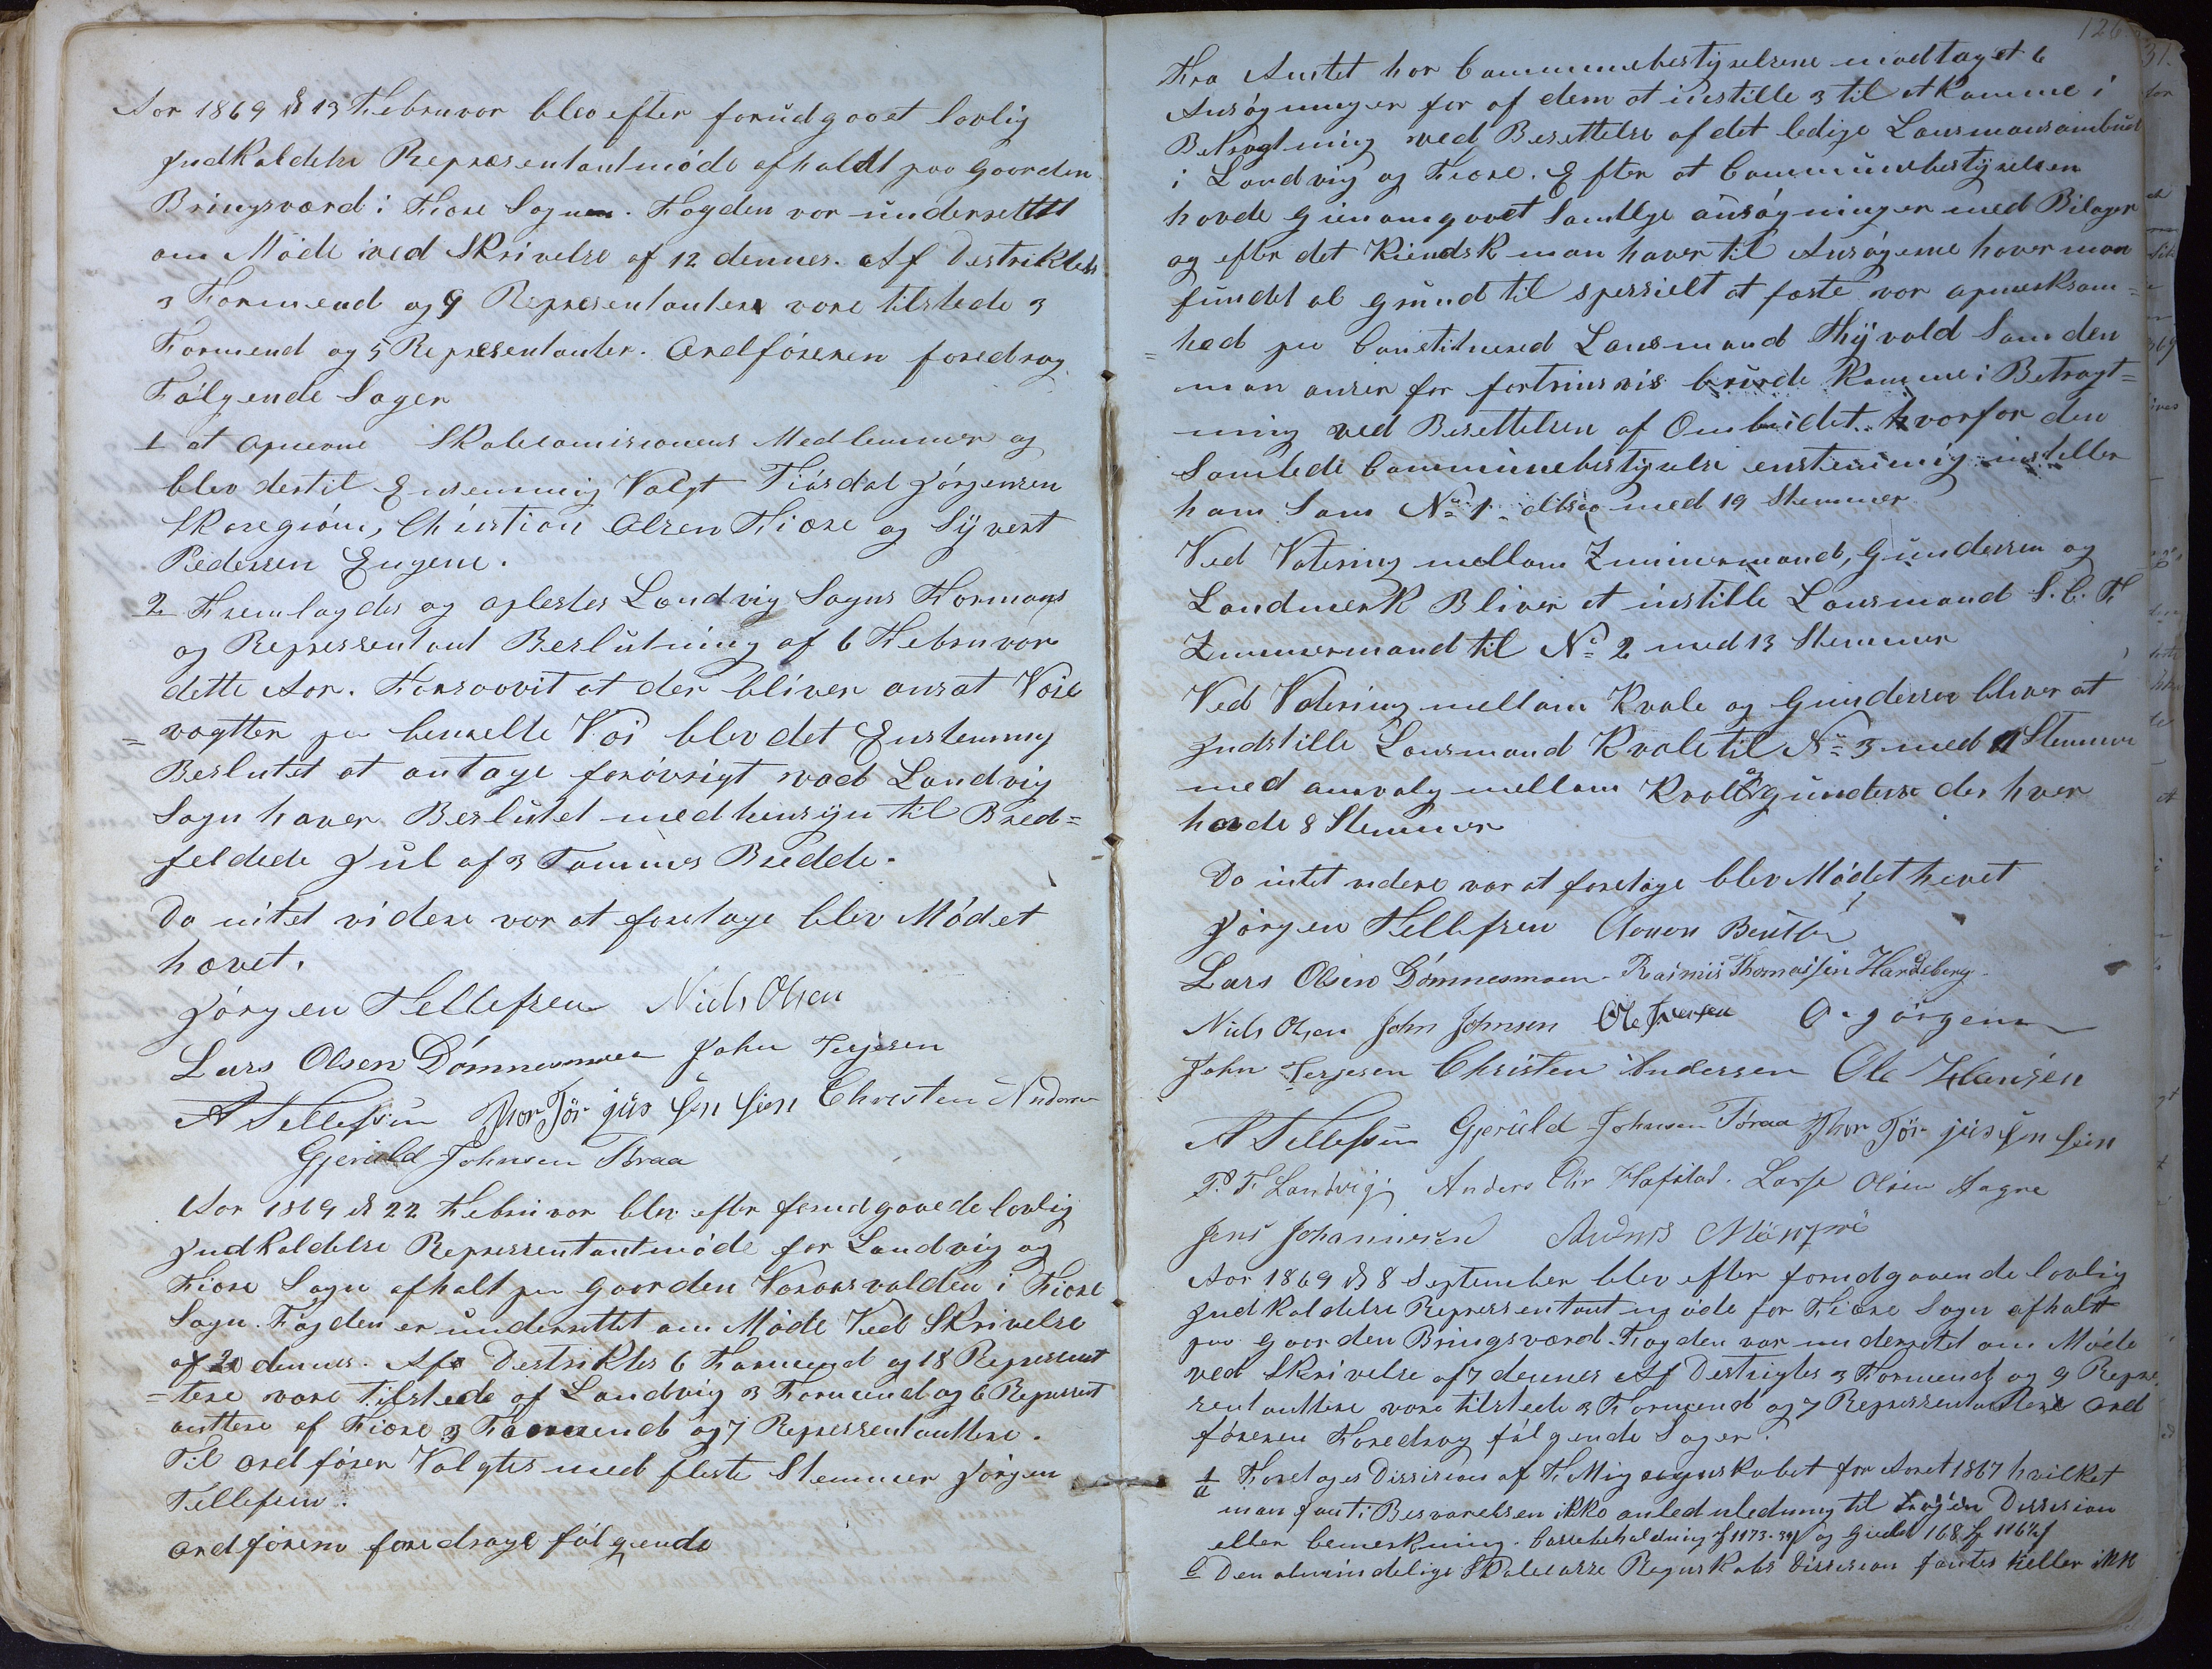 Aar 1869 d 13 Februvar blev efter forudgaaet lovlig
Jndkaldelse Repræsentantmöde afholdt paa gaarden
Bringsværd i Fiære Sogn. Fogden var undersettet
om Möde ved Skrivelse af 12 dennes. Af Destriktes
3 Formend og 9 Representantere vare tilstede 3
Formend og 5 Representanter. Ordföreren foredrag
Fölgende Sager
1 at opnevne Skolecomisionens Medlemmer og
blev dertil Ensemmig Valgt Fiösdal Jörgensen
Skaregröm, Christian Olsen Fiære og Syvert
Pedersen Engene.
2 Fremlagdes og oplestes Landvig Sogns Formans
og Repressentant Beslutning af 6 Februvar
dette Aar. Forsaavit at der bliver ansat Veie
= vogtter paa benevlte Vei blev det Enstemmig
Beslutet at antage forövrigt vad Landvig
Sogn haver Beslutet med hensyn til Bred=
feldede Jul af 3 Tommes Bredde.
Da intet videre var at foretage blev Mödet
hævet.
Jörgen Tellefsen Niels Olsen
Lars Olsen Dömmesmoen John Terjesen
A Tellefsen Thor Tör jus sen sien Christen Anders
Gjeruld Johnsen Braa
Aar 1869 d 22 Februvar blev efter forudgaaede lovlig
Jndkaldelse Repressentantmöde for Landvig og
Fiære Sogn afhalt paa gaarden Varaasvolden i Fiære
Sogn. Fogden er undersettet om Möde Ved Skrivelse
af 20 dennes. Af Destriktes 6 Formend og 18 Represent
= tere vare Tilstede af Landvig 3 Formend og 6 Represent
anttere af Fiære 3 Formend og 7 Repressentanttere.
Til Ordförer Valgtes med fleste Stemmer Jörgen
Tellefsen.
Ordföreren foredrage fölgende
126
Fra Amtet har Communebestyrelsene modtaget 6
Ansögninger for af dem at instille 3 til at komme i
Betragtning ved Besettelse af det ledige Lansmansombud
i Landvig og Fiære. Efter at Communebestyrelsen
havde gienomgaaet Samtlige ansögninger med Bilager
og efter det Kiendsk man haver til Ansögerne haver man
fundet al grund til spersielt at fæste vor opmerksom=
= hed paa Constituered Lansmand Thyvold Som den
man anser for fortrinsvis burde komme i Betragt=
ning ved Besettelsen af Ombudet. hvorfor den
Samlede Communebestyrelse enstemmig instiller
ham Som No 1 altsaa med 19 Stemmer
Ved Votering mellom Zimmermand, Gundersen og
Landmerk Bliver at instille Lansmand S. C. F
Zimmermand til No 2 med 13 Stemmer
Ved Votering mellom Kvale og Gundersen bliver at
Jndstille Lansmand Kvale til No 3 med 11 Stemmer
med omvalg mellom Kvale og gundersen der hver
havde 8 Stemmer
Da intet videre var at foretage blev Mödet hevet
Jörgen Tellefsen Aanon Bentsen
Lars Olsen Dömmesmoen. Rasmus Thomassen Hardeberg.
Niels Olsen John Johnsen Ole Jversen O. Jörgens
John Terjesen Christen Andersen Ole Hensen
A Tellefsen Gjeruld Johnsen Töraa Thor Tör jus sen sien
P. T. Landvig Anders Chr Hafstad. Lasse Olsen Aagre
Jens Johannesen
Aar 1869 d 8 September blev efter forudgaaende lovlig
Jndkaldelse Repressentantmöde for Fiære Sogn afhalt
paa gaarden Bringsværd. Fogden var undersetet om Möde
ved Skrivelse af 7 dennes Af Destrigtes 3 Formend og 9 Repre
sentanttere vare tilstede 3 Formend og 7 Repressentantere Ord
föreren Foredrog fölgende Sager.
1/a Foretages Dissision af F Migregnskabet for Aaret 1867 hvilket
man fant i Besvarelsen ikke anledledning til nogen Dissision
eller bemerkning. Cassebehaldning 1173. 39 og Gield 168 1162
b Den almindelige Skolecasse Regnskabs Dissision fantes heller ikke